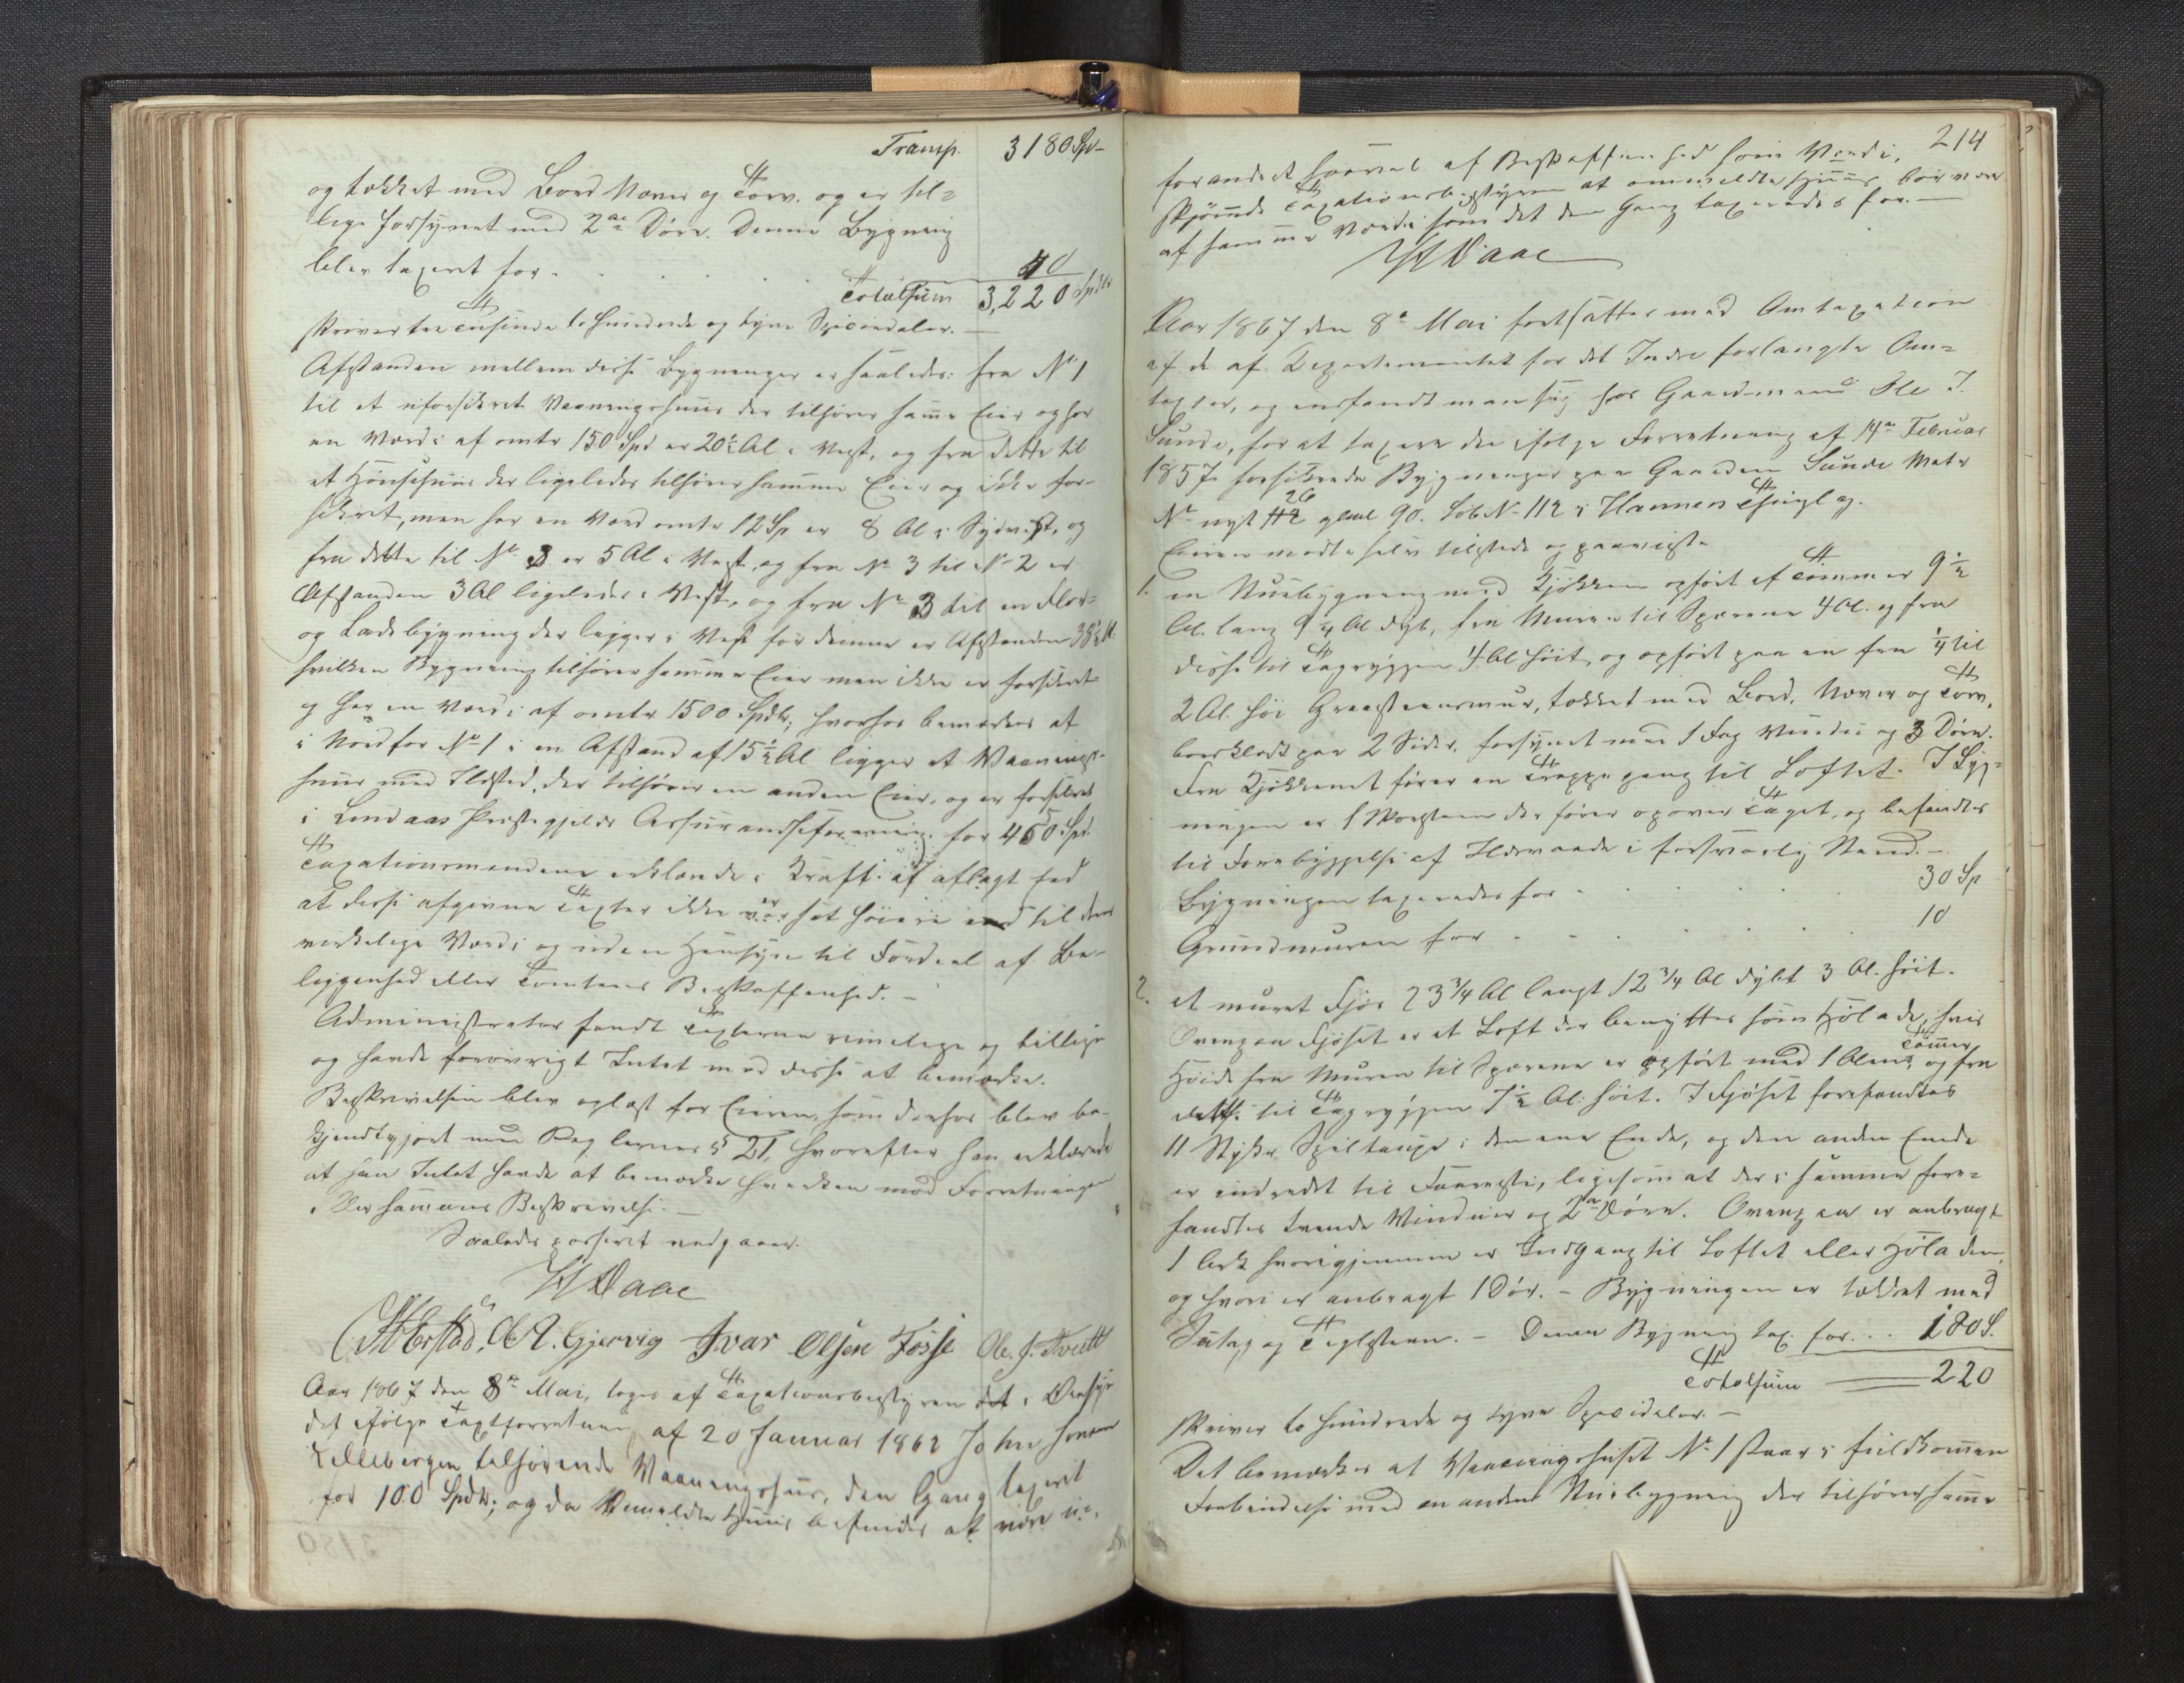 Transp. 3180 Spd
og tækket med Bord Næver og Torv. og er til=
lige forsynet med 2de Døre. Denne Bygning
blev taxeret for . . . . 40
Totalsum 3,220 Spdlr
skriver tre Tusinde to Hundrede og tyve Speciedaler. —
Afstanden mellem disse Bygninger er saaledes: fra No 1
til et uforsikret Vaaningshuus der tilhører samme Eier og har
en Værdi af omtr 150 Spd er 20½ Al i Vest, og fra dette til
et Hønsehuus der ligeledes tilhører samme Eier og ikke for-
sikret, men har en Værd omtr 12 Sp er 8 Al i Sydvest, og
fra dette til No 3 er 5 Al i Vest, og fra No 3 til No 2 er
Afstanden 3 Al ligeledes i Vest, og fra No 3 til en Flor=
og Ladebygning der ligger i Vest for denne er Afstanden 38½ Al.
hvilken Bygning tilhører samme Eier men ikke er forsikret
og har en Værdi af omtr 1500 Spdlr; hvorhos bemærkes at
i Nord for No 1 i en Afstand af 15½ Al ligger et Vaanings-
huus med Ildsted, der tilhører en anden Eier, og er forsikret
i Lindaas Præstegjelds Assuranceforening for 450 Spd.
Taxationsmændene erklærede i Kraft af aflagt Eed
at disse afgivne Taxter ikke er sat høiere end til deres
virkelige Værdi og uden Hensyn til Fordeel af Be-
liggenhed eller Tomtens Beskaffenhed. —
Administrator fandt Taxterne rimelige og billige
og havde forøvrigt Intet mod disse at bemærke.
Beskrivelsen blev oplæst for Eieren, som derhos blev be-
kjendtgjort med Reglernes § 21, hvorefter han erklærede
at han Intet havde at bemærke hverken mod Forretningen
eller sammes Beskrivelse. —
Saaledes passeret vedgaaes.
Daae
O. A. Gjervig Ivar Olsen Fosse Ole. J. Tveitt
Aar 1867 den 8de Mai, toges af Taxationsbestyreren det i Øiesyn
det ifølge Taxtforretning af 20 Januar 1862 John
Lillebergen tilhørende Vaaningshuus, den Gang taxeret
for 100 Spdlr; og da bemeldte Huus befindes at være u=
214
forandret saavel af Beskaffenhed som Værdi,
skjønnede Taxationsbestyreren at ommeldte Huus bør være
af samme Værdi som det den Gang taxeredes for. —
Daae
Aar 1867 den 8de Mai fortsattes med Omtaxation
af de af Departementet for det Indre forlangte Om=
taxter, og indfandt man sig hos Gaardmand Ole J.
Sunde, for at taxere de ifølge Forretning af 14de Februar
1857 forsikrede Bygninger paa Gaarden Sunde Matr
No nyt 26 gammel 90. Løb No 112 i Hammers Thinglag.
Eieren mødte selv tilstede og paaviste
1. en Stuebygning med Kjøkken opført af Tømmer 9½
Al. lang 9¼ Al dyb, fra Muren til Sperrene 4 Al. og fra
disse til Tagryggen 4 Al høit, og opført paa en fra ¼ til
2 Al. høi Graasteensmuur, tækket med Bord, Næver og Torv,
bordklædt paa 2 Sider, forsynet med 1 Fag Vindue og 3 Døre.
Fra Kjøkkenet fører en Trappegang til Loftet. I Byg=
ningen er 1 Skorsteen der fører op over Taget, og befandtes
til Forebyggelse af Ildsvaade i forsvarlig Stand. —
Bygningen taxeredes for . . . . 30 Sp
Grundmuren for . . . . 10
2. et muret Fjøs 23¾ Al langt 12¾ Al dybt 3 Al. høit.
Ovenpaa Fjøset er et Loft der benyttes som Hølade, hvis
Høide fra Muren til Sperrene er opført med 1 Alens Tømmer og fra
dette til Tagryggen 7½ Al. høit. I Fjøset forefandtes
11 Stykker Spiltauge i den ene Ende, og den anden Ende
er indredet til Faaresti, ligesom at der i samme fore=
fandtes tvende Vinduer og 2de Døre. Ovenpaa er anbragt
1 Ark hvorigjennem er Indgang til Loftet eller Høladen
og hvori er anbragt 1 Dør. - Bygningen er tækket med
Sutag og Taglsteen. - Denne Bygning tax. for . . . 180 S.
Totalsum 220
skriver to Hundrede og tyve Speciedaler. —
Det bemærkes at Vaaningshuset No 1 staar i fuldkommen
Forbindelse med en anden Stuebygning der tilhører samme